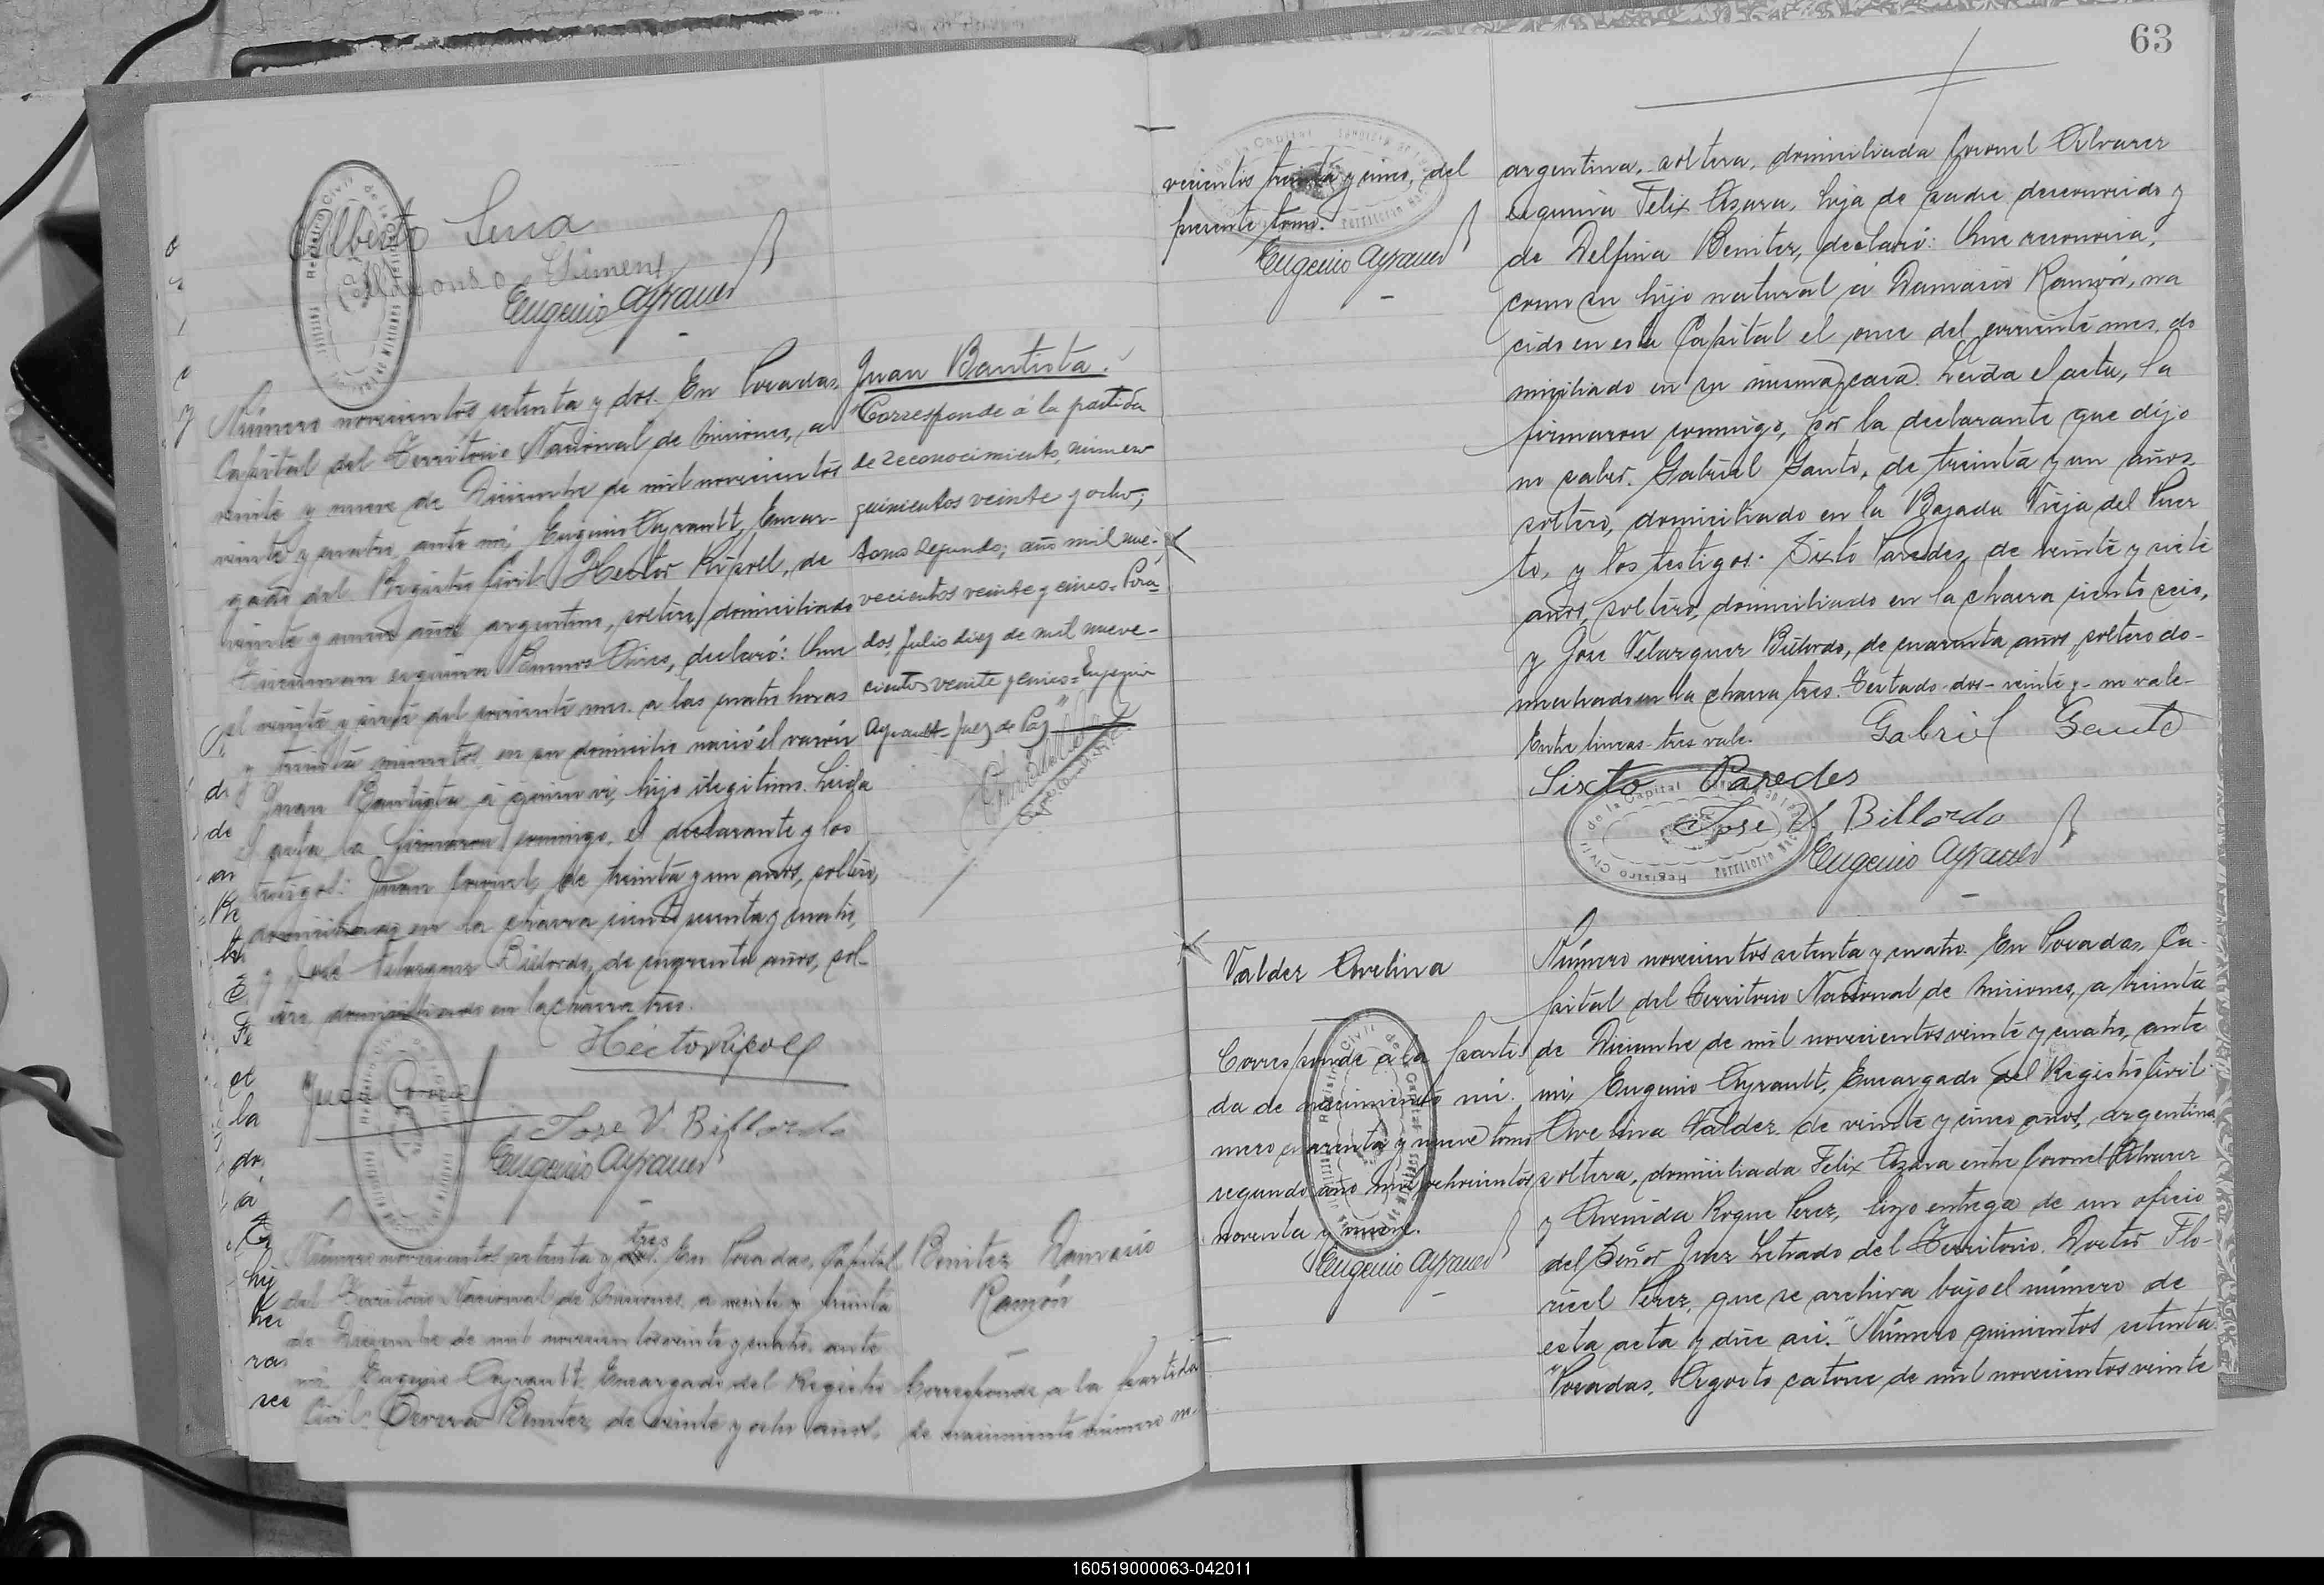 Alberto Sena
Alfonso Ximenes
Eugenio Ayrault
Número novecientos setenta y dos. En Posadas,
Capital del Territorio Nacional de Misiones, a
veinte y nueve de Diciembre de mil novecientos
veinte y cuatro, ante mí, Eugenio Ayrault, Encar-
gado del Registro Civil. Hector Ripoll, de
veinte y nueve años argentino, soltero, domiciliado
Tucuman esquina Buenos Aires, declaró: Que
el veinte y siete del corriente mes a las cuatro horas
y treinta minutos, en su domicilio nació el varón
Juan Bautista, á quien vi, hijo ilegitimo. Leida
el acta, la firmaron conmigo, el declarante y los
testigos: Juan Coronel, de treinta y un años, soltero,
domiciliado en la chacra ciento y cuatro,
y José Velazquez Billordo, de cuarenta años, sol-
tero domiciliado en la chacra tres.
Hector Ripoll
Juan Coronel
Jose V. Billordo
Eugenio Ayrault
Juan Bautista.
"Corresponde á la partida
de reconocimiento, número
quinientos veinte y ocho;
tomo segundo; año mil nue-
vecientos veinte y cinco. Posa-
das, Julio diez de mil nueve-
cientos veinte y cinco = Eugenio
Ayrault = Juez de Paz"
Número novecientos setenta y dos. tres En Posadas, Capital
del Territorio Nacional de Misiones, a veinte y treinta
de Diciembre de mil novecientos veinte y cuatro, ante
mí, Eugenio Ayrault, Encargado del Registro
Civil: Benitez, de veinte y ocho años,
Benitez Damasio
Ramón
Corresponde a la partida
de nacimiento número no-
63
vecientos treinta y cinco, del
presente tomo.
Eugenio Ayrault
argentina, soltera, domiciliada Coronel Alvarez
esquina Felix Azara, hija de padre desconocido y
de Delfina Benitez, declaró: Que reconocia,
como su hijo natural á Damasio Ramón, na
cido en esta Capital el once del corriente mes, do
miciliado en su misma casa. Leida el acta, la
firmaron conmigo, por la declarante que dijo
no saber. Gabriel Gauto, de treinta y un años
soltero, domiciliado en la Bajada Vieja del Puer
to, y los testigos: Sixto Paredes, de veinte y siete
años, soltero, domiciliado en la chacra ciento seis,
y Jose Velazquez Billordo, de cuarenta años, soltero do-
miciliado en la chacra tres. Testado-dos-veinte y-no vale-
Entre lineas-tres vale.
Gabriel Gauto
Sixto Paredes
Jose V. Billordo
Eugenio Ayrault
Valdez Avelina
Corresponde a la parti-
da de nacimiento nú-
mero cuarenta y nueve tomo
segundo año mil ochocientos
noventa y nueve.
Eugenio Ayrault
Número novecientos setenta y cuatro. En Posadas, Ca-
pital del Territorio Nacional de Misiones, a treinta
de Diciembre de mil novecientos veinte y cuatro, ante
mí, Eugenio Ayrault, Encargado del Registro Civil:
Avelina Valdez, de veinte y cinco años, argentina,
soltera, domiciliada Felix Azara entre Coronel Alvarez
y Avenida Roque Perez, hizo entrega de un oficio
del Señor Juez Letrado del Territorio, Doctor Flo-
ricel Perez, que se archiva bajo el número de
esta acta y dice asi: "Número quinientos setenta
"Posadas, Agosto catorce de mil novecientos veinte
160519000063-042011